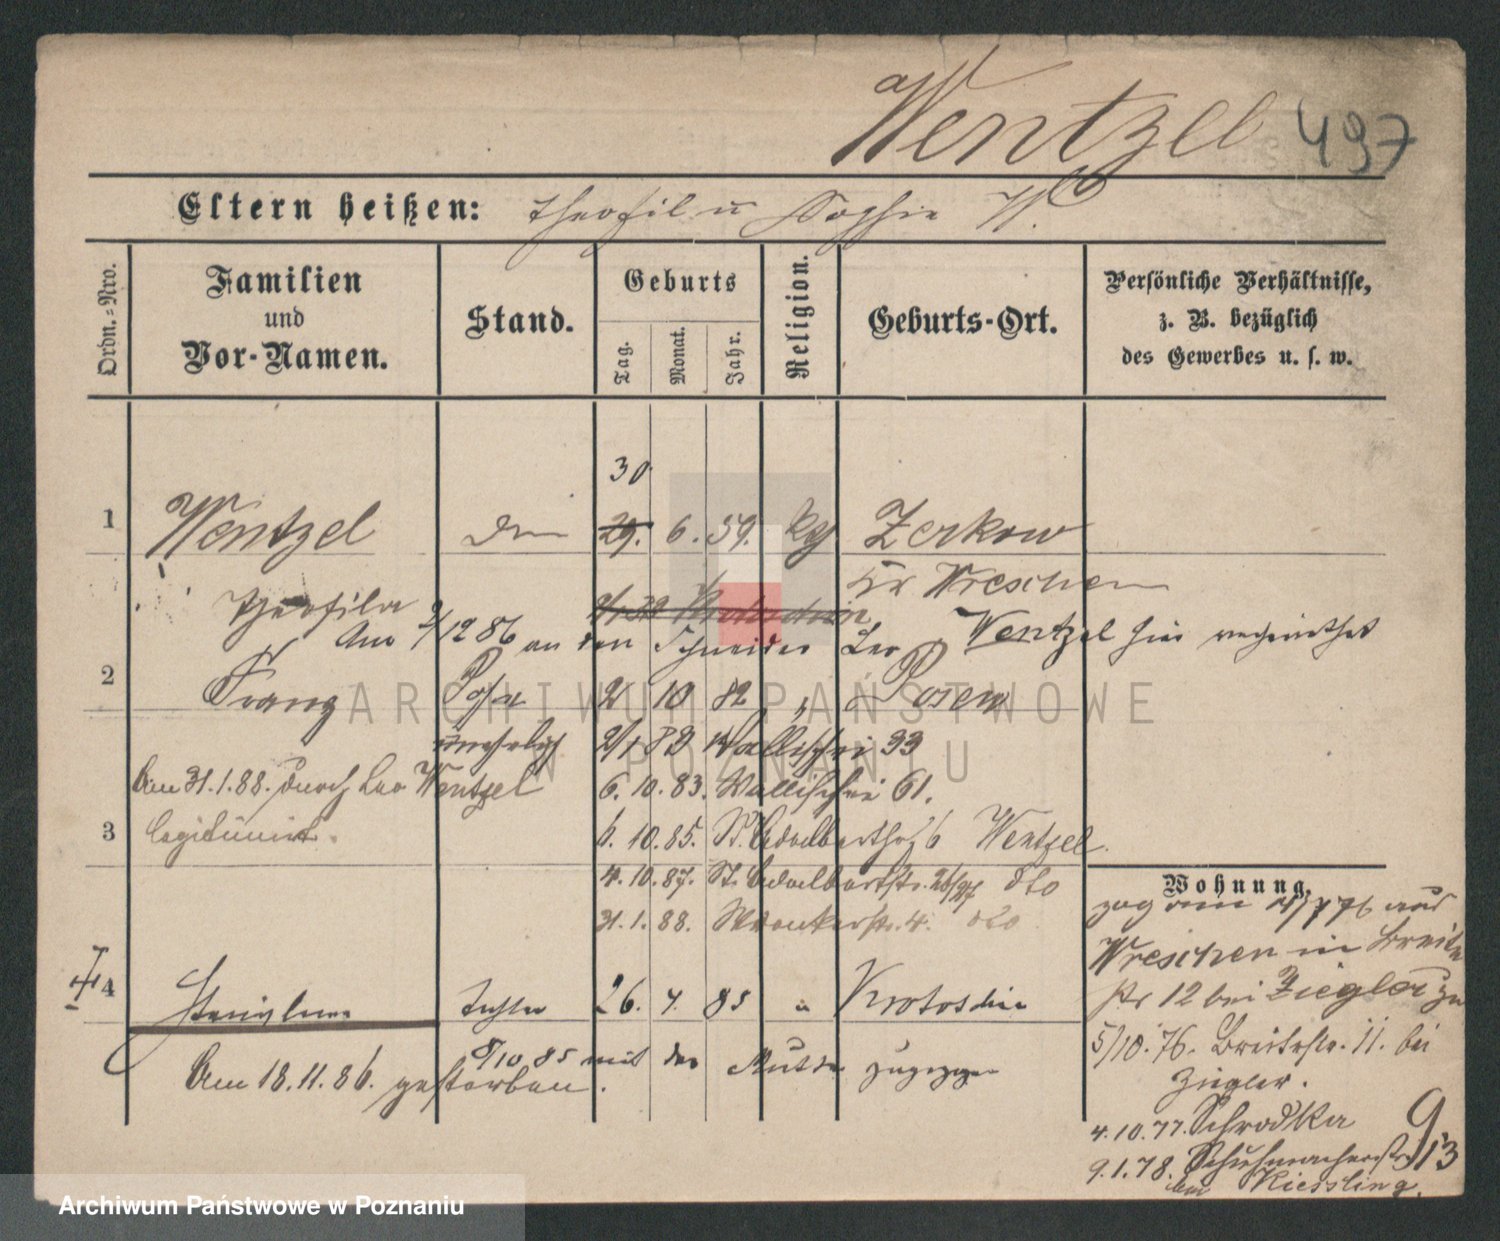 Wentzel 497
Eltern heißen: Theofil u Sophie W.
Ordn.=Nro.
Familien
und
Vor-Namen.
Stand.
Geburts
Tag.
Monat.
Jahr.
Religion.
Geburts-Ort.
Persönliche Verhältnisse,
z. B. bezüglich
des Gewerbes u. s. w.
30
1 Wentzel 29. 6. 59. Zerkow
Wreschen
Theofila
Am 2/12 86 an den Schneider Leo Wentzel hier verheirathet
2 Franz 2 10 82 " Posen
unehelich 2/1 83 Wallischei 33
Am 31.1.88. durch Leo Wentzel 6. 10. 83. Wallischei 61.
3 legitimirt. 6. 10. 85. St. Adalbertstr. 6 Wentzel.
4. 10. 87. St. Adalbertstr. 26/27 dto
31. 1. 88. Wronkerstr. 4. dto
Wohnung.
zog am 76 aus
Wreschen in Breite
str 12 bei Ziegler zu
5/10. 76. Breitestr. 11. bei
Ziegler.
4. 10. 77. Schrodka
9. 1. 78. Schuhmacherstr. 9/13
bei Kiessling.
4 Stanislawa Tochter 26. 4. 85 " Krotoschin
8/10 85 mit der Mutter zugezogen
Am 18. 11. 86. gestorben.
ARCHIWUM PAŃSTWOWE
W POZNANIU
Archiwum Państwowe w Poznaniu